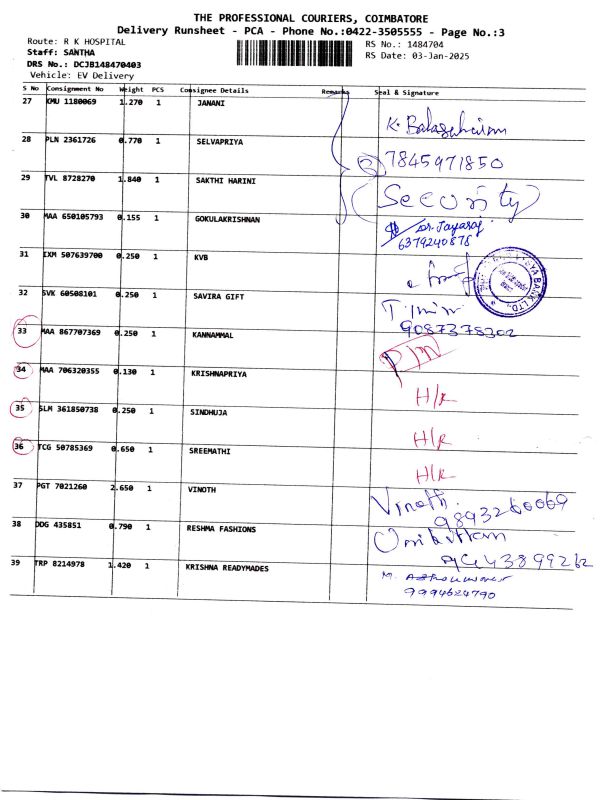 THE PROFESSIONAL COURIERS, COIMBATORE
Delivery Runsheet - PCA - Phone No.:0422-3505555 - Page No.:3
Route: R K HOSPITAL
RS No.: 1484704
Staff: SANTHA
RS Date: 03-Jan-2025
DRS No.: DCJB148470403
Vehicle: EV Delivery
S No Consignment No Weight PCS Consignee Details Remarks Seal & Signature
27 KMU 1180069 1.270 1 JANANI
28 PLN 2361726 0.770 1 SELVAPRIYA 7845971850
29 TVL 8728270 1.840 1 SAKTHI HARINI (Security)
30 MAA 650105793 0.155 1 GOKULAKRISHNAN Dr. Jayaraj
6379240878
31 IXM 507639700 0.250 1 KVB
32 SVK 60508101 0.250 1 SAVIRA GIFT
9087378302
33 MAA 867707369 0.250 1 KANNAMMAL
34 MAA 706320355 0.130 1 KRISHNAPRIYA H/R
35 SLM 361850738 0.250 1 SINDHUJA H/R
36 TCG 50785369 0.650 1 SREEMATHI H/R
37 PGT 7021260 2.650 1 VINOTH Vinoth.
9893260069
38 DDG 435851 0.790 1 RESHMA FASHIONS
39 TRP 8214978 1.420 1 KRISHNA READYMADES M.
9994624790